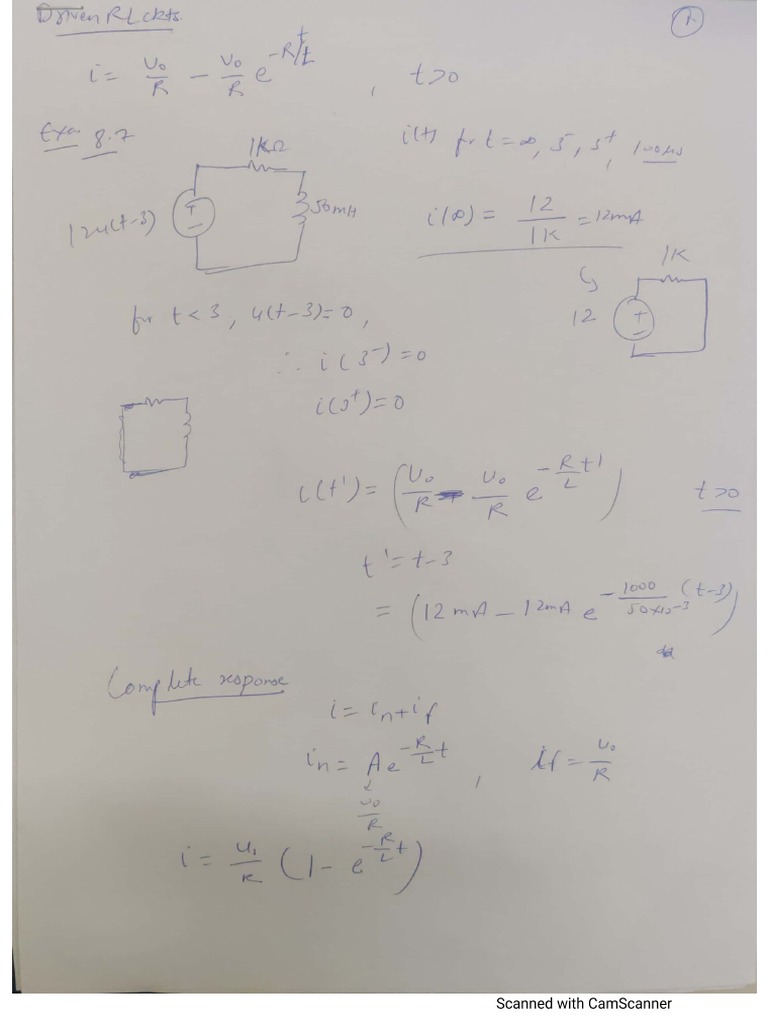 Driven RL ckts.
1
i = V₀/R − V₀/R e^(−R t/L) , t>0
Exa 8.7
i(t) for t = ∞, 3⁻, 3⁺, 100μs
1KΩ
12u(t-3)
+
−
50mH
i(∞) = 12/1K = 12mA
1K
12
+
−
for t < 3, u(t−3) = 0,
∴ i(3⁻) = 0
i(3⁺) = 0
i(t') = (V₀/R − V₀/R e^(−R/L t')) t>0
t' = t-3
= (12 mA − 12mA e^(−1000/50×10⁻³ (t-3)))
Complete response
i = iₙ + i_f
iₙ = A e^(−R/L t) , i_f = V₀/R
V₀/R
(1 − e^(−R/L t))
Scanned with CamScanner